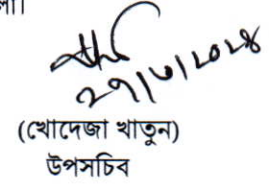 ২৭/৩/২০২৪
(খোদেজা খাতুন)
উপসচিব